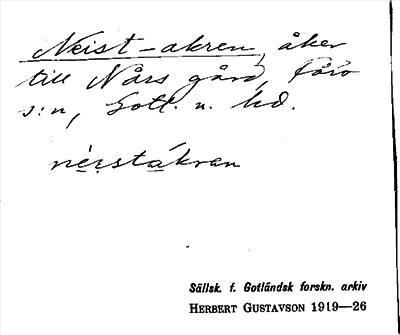 Neist-akren, åker
till Nårs gård, Fårö
s:n, Gotl. n. hd.
néi̯stákran
Sällsk. f. Gotländsk forskn. arkiv
HERBERT GUSTAVSON 1919—26